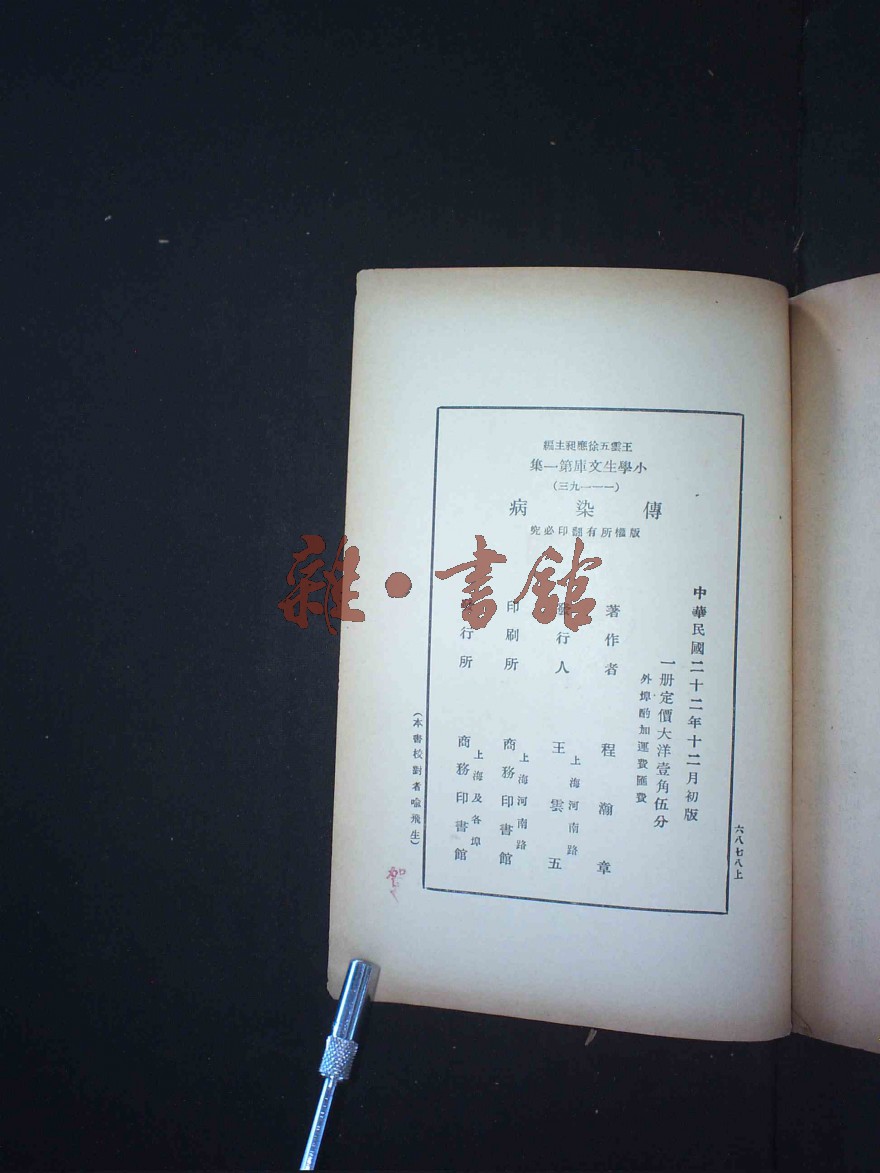 王雲五徐應昶主編
小學生文庫第一集
(一一一九三)
傳染病
版權所有翻印必究
中華民國二十二年十二月初版
一册定價大洋壹角伍分
外埠酌加運費匯費
著作者 程瀚章
發行人 上海河南路 王雲五
印刷所 上海河南路 商務印書館
發行所 上海及各埠 商務印書館
(本書校對者喻飛生)
六八七八上
雜·書館